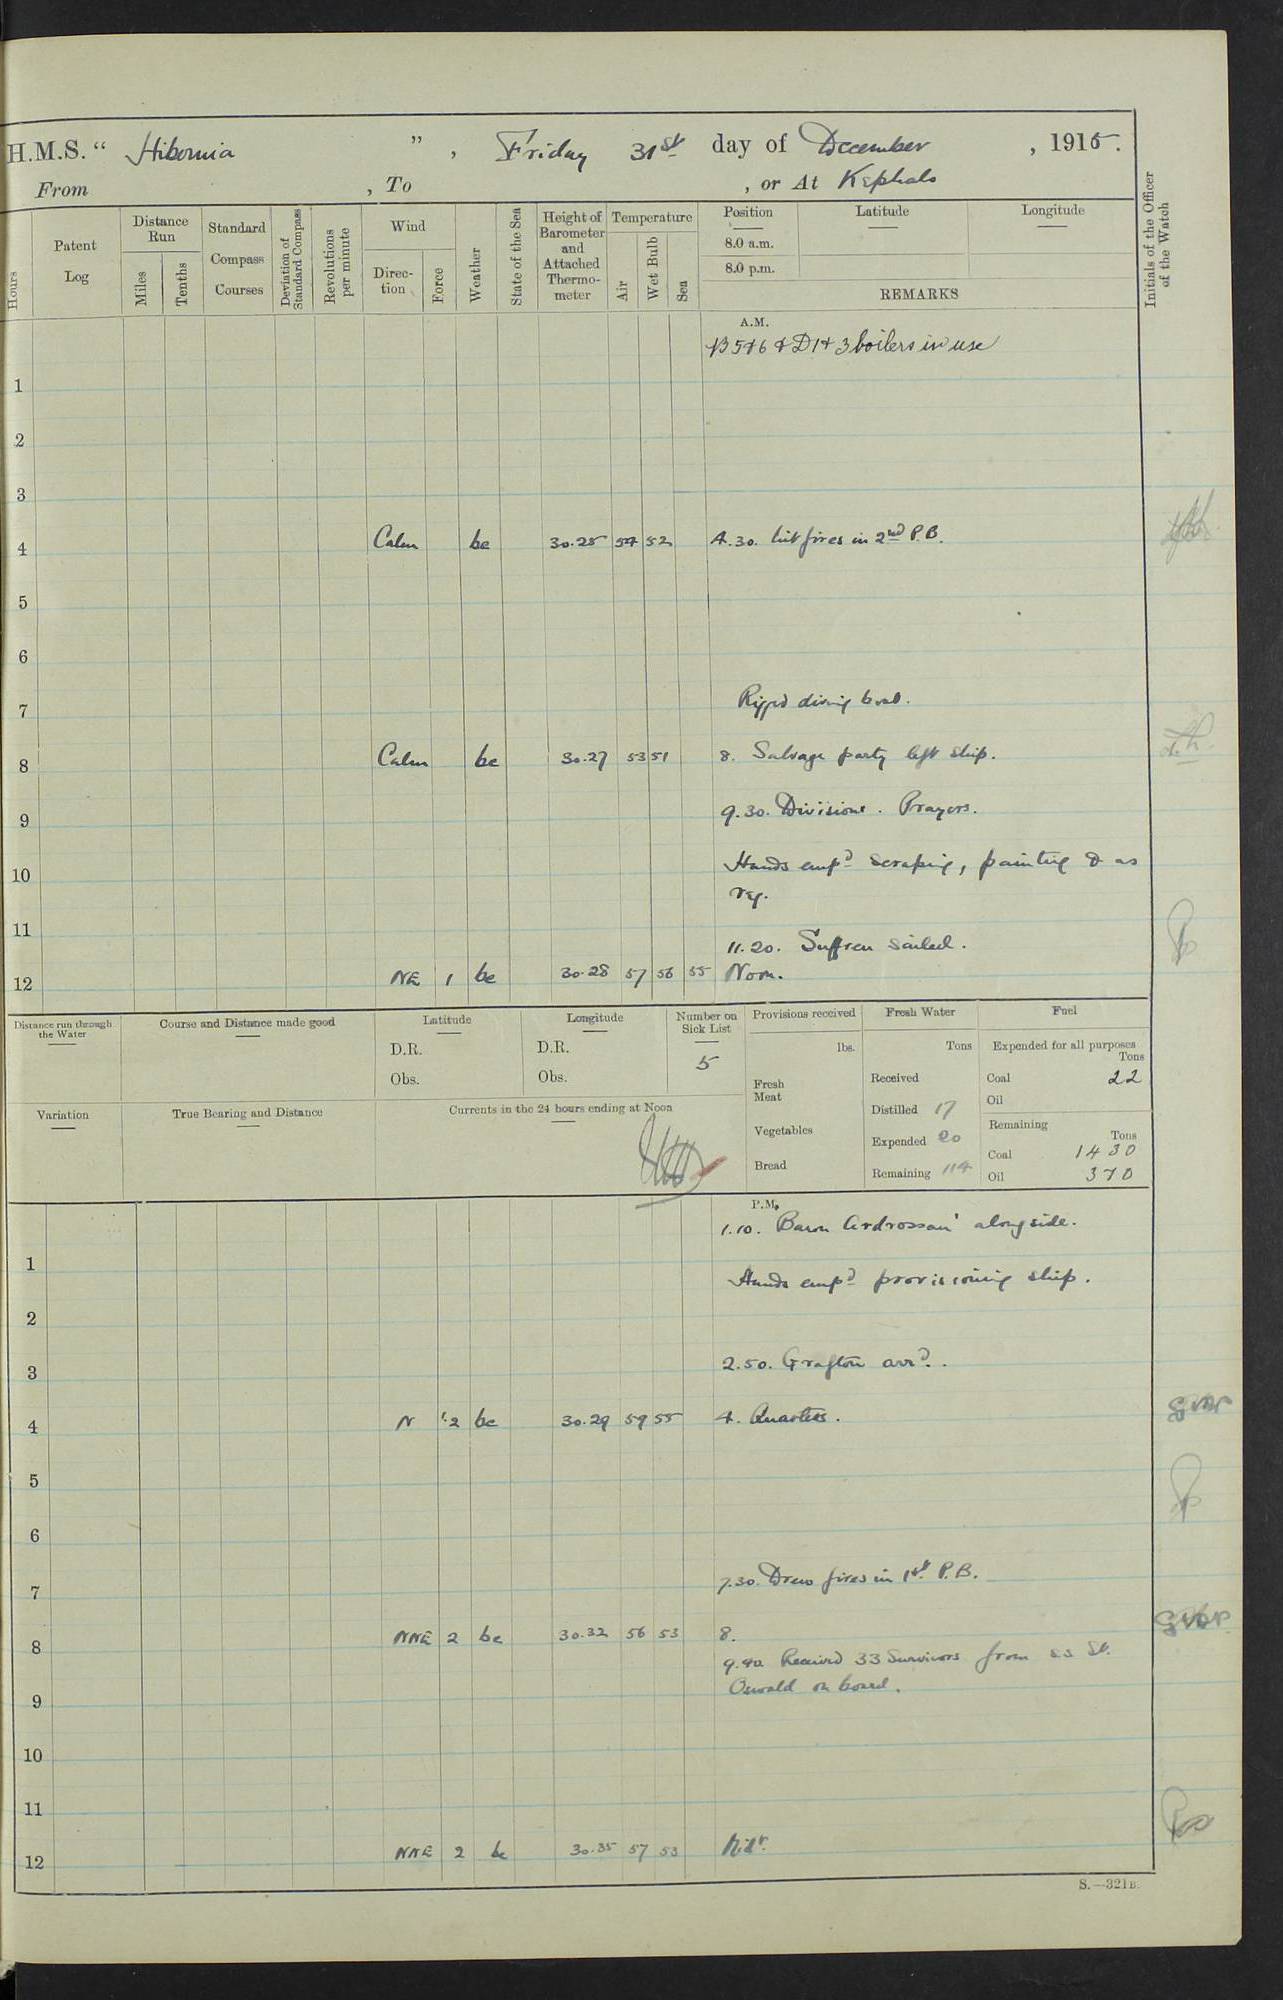 H.M.S. “ Hibernia ” , Friday 31st day of December , 1915.
From , To , or At Kephalo
Hours
Patent Log
Distance Run
Miles
Tenths
Standard Compass Courses
Deviation of Standard Compass
Revolutions per minute
Wind
Direc-tion
Force
Weather
State of the Sea
Height of Barometer and Attached Thermo-meter
Temperature
Air
Wet Bulb
Sea
Position
8.0 a.m.
8.0 p.m.
Latitude
Longitude
REMARKS
Initials of the Officer of the Watch
A.M.
B 5+6 & D1+3 boilers in use
1
2
3
4 Calm bc 30.25 54 52 4.30. Lit fires in 2nd P.B.
5
6
7 Rigged diving boat.
8 Calm bc 30.27 53 51 8. Salvage party left ship.
9 9.30. Divisions. Prayers.
10 Hands empd scraping, painting & as
req.
11
11.20. Suffren sailed.
12 NE 1 bc 30.28 57 56 55 Noon.
Distance run through the Water
Course and Distance made good
Latitude
D.R.
Obs.
Longitude
D.R.
Obs.
Number on Sick List
5
Provisions received
lbs.
Fresh Meat
Vegetables
Bread
Fresh Water
Tons
Received
Distilled 17
Expended 20
Remaining 114
Fuel
Expended for all purposes
Tons
Coal 22
Oil
Remaining
Tons
Coal 1430
Oil 370
Variation
True Bearing and Distance
Currents in the 24 hours ending at Noon
P.M.
1.10. Baron Ardrossan' alongside.
1
Hands empd provisioning ship.
2
3 2.50. Grafton arrd.
4 N 1.2 bc 30.29 59 55 4. Quarters.
5
6
7 7.30. Drew fires in 1st P.B.
8 NNE 2 bc 30.32 56 53 8.
9.40 Received 33 Survivors from SS St.
Oswald on board.
9
10
11
12 NNE 2 bc 30.35 57 53 Midt.
S.—321B.